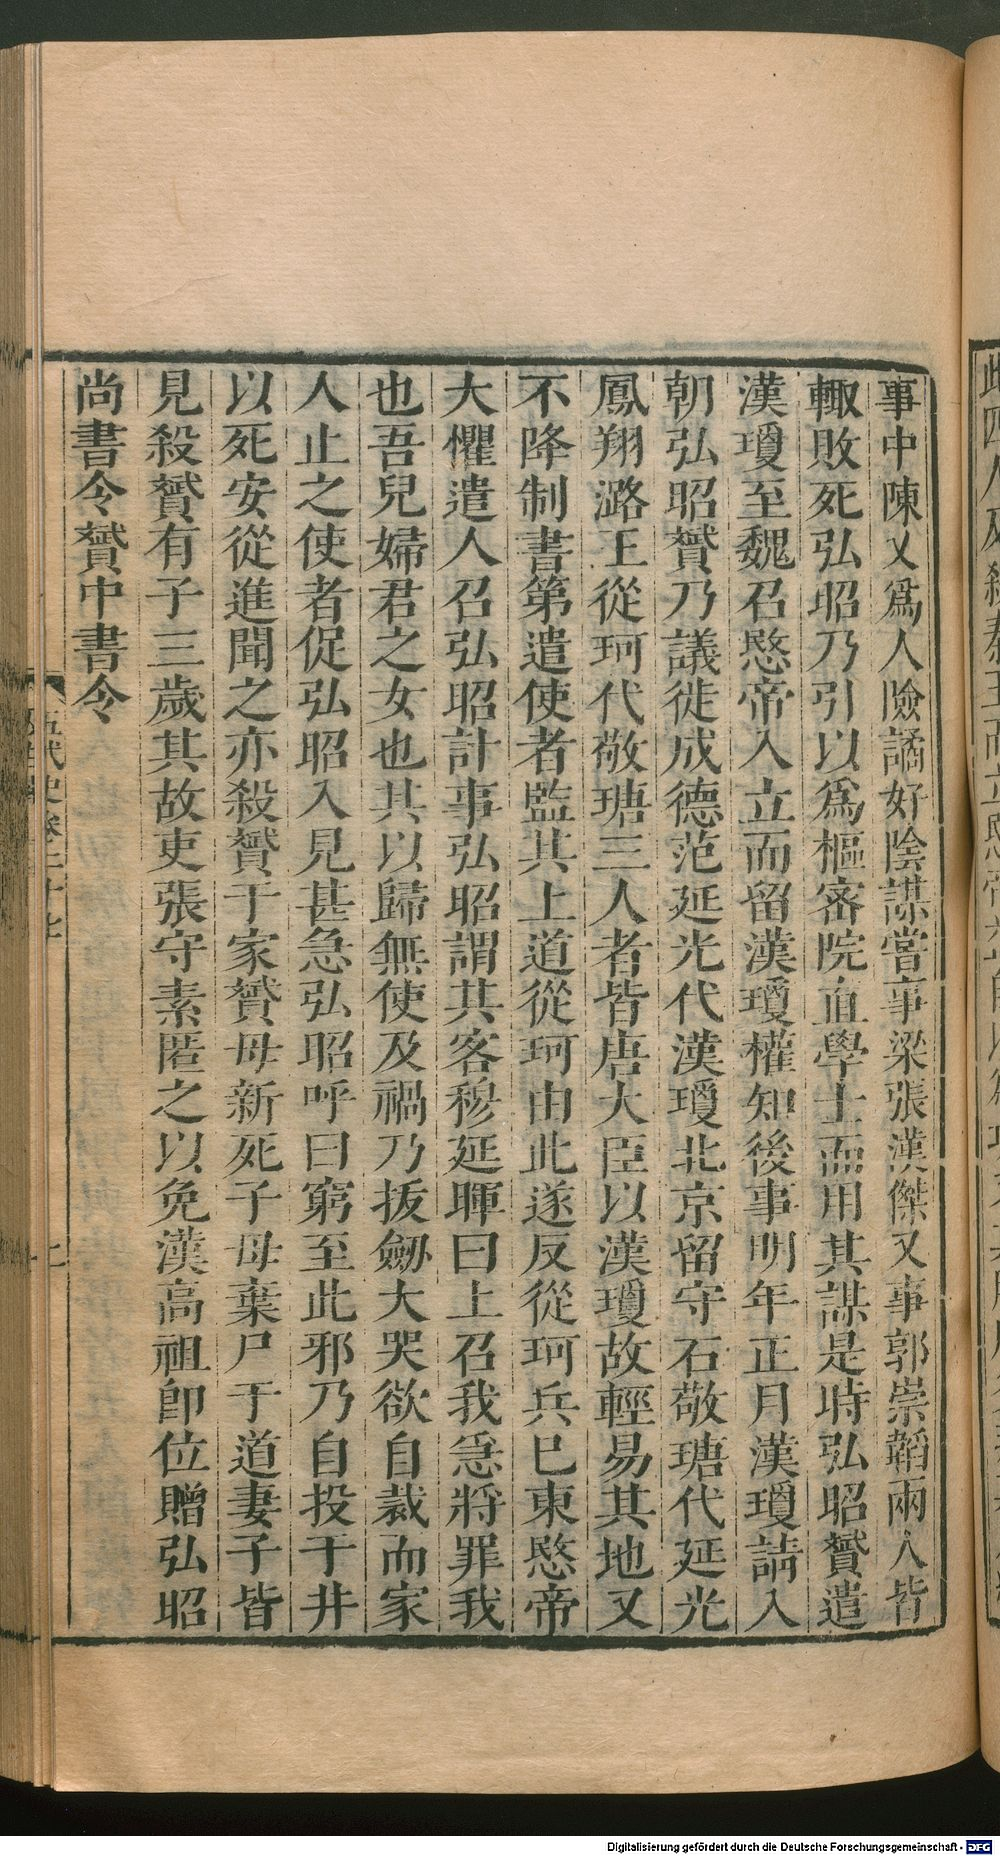 事中陳乂爲人險譎好陰謀嘗事梁張漢傑又事郭崇韜兩人皆
輙敗死弘昭乃引以爲樞密院直學士而用其謀是時弘昭贇遣
漢瓊至魏召愍帝入立而留漢瓊權知後事明年正月漢瓊請入
朝弘昭贇乃議徙成德范延光代漢瓊北京留守石敬瑭代延光
鳳翔潞王從珂代敬瑭三人者皆唐大臣以漢瓊故輕易其地又
不降制書第遣使者監其上道從珂由此遂反從珂兵已東愍帝
大懼遣人召弘昭計事弘昭謂其客穆延暉曰上召我急將罪我
也吾兒婦君之女也其以歸無使及禍乃拔劒大哭欲自裁而家
人止之使者促弘昭入見甚急弘昭呼曰窮至此邪乃自投于井
以死安從進聞之亦殺贇于家贇母新死子母棄尸于道妻子皆
見殺贇有子三歲其故吏張守素匿之以免漢高祖卽位贈弘昭
尚書令贇中書令
五代史卷二十七
Digitalisierung gefördert durch die Deutsche Forschungsgemeinschaft - DFG